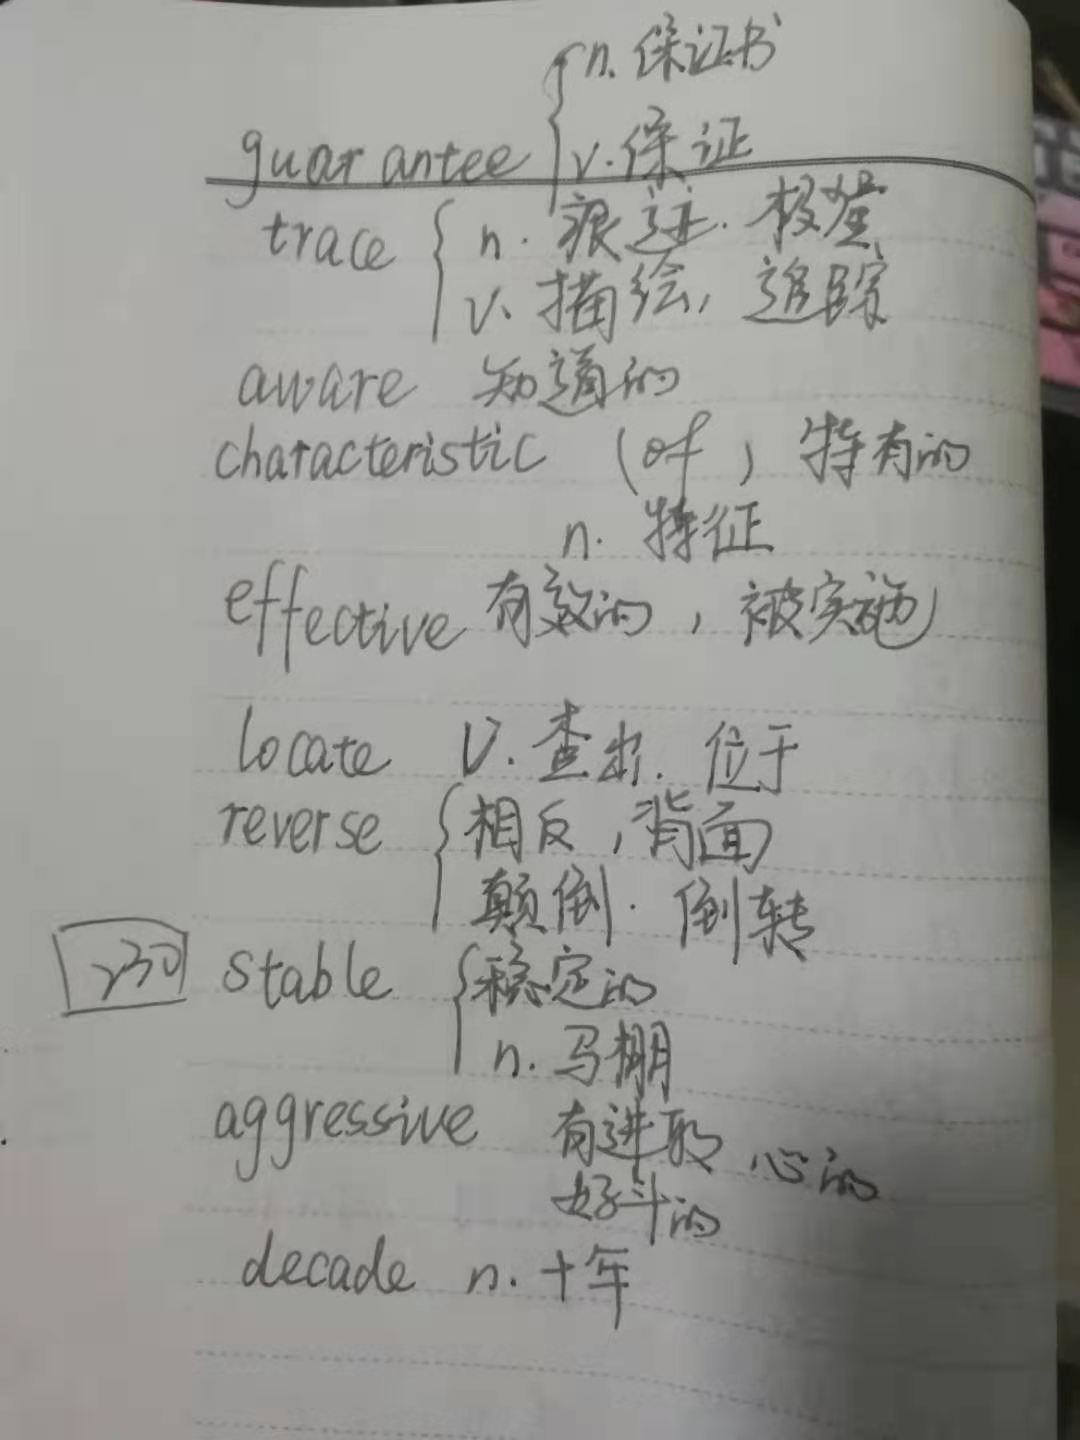 n. 保证书
guarantee v. 保证
trace n. 痕迹. 极量
v. 描绘, 追踪
aware 知道的
characteristic (of) 特有的
n. 特征
effective 有效的, 被实施
locate v. 查出. 位于
reverse 相反, 背面
颠倒. 倒转
230 stable 稳定的
n. 马棚
aggressive 有进取心的
好斗的
decade n. 十年